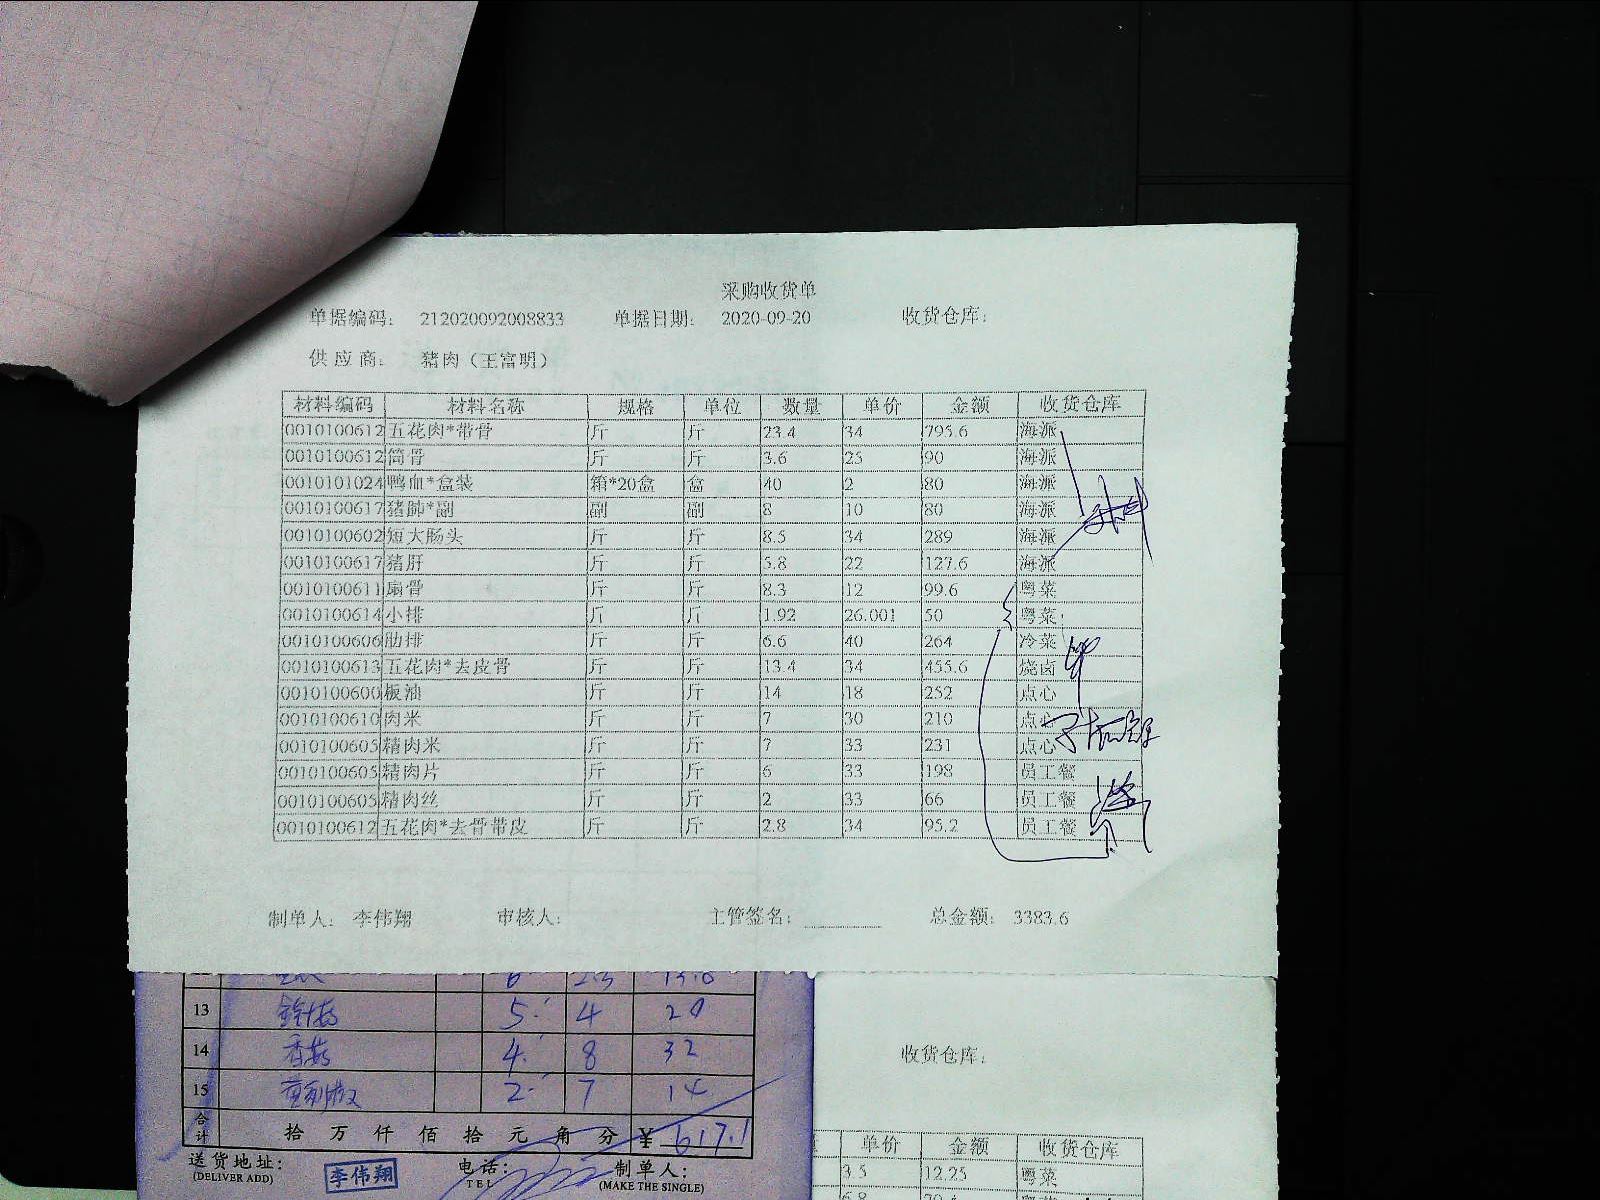 采购收货单
单据编码： 212020092008833 单据日期： 2020-09-20 收货仓库：
供 应 商： 猪肉（王富明）
材料编码 材料名称 规格 单位 数量 单价 金额 收货仓库
0010100612 五花肉*带骨 斤 斤 23.4 34 795.6 海派
0010100612 筒骨 斤 斤 3.6 25 90 海派
0010101024 鸭血*盒装 箱*20盒 盒 40 2 80 海派
0010100617 猪肺*副 副 副 8 10 80 海派
0010100602 短大肠头 斤 斤 8.5 34 289 海派
0010100617 猪肝 斤 斤 5.8 22 127.6 海派
0010100611 扇骨 斤 斤 8.3 12 99.6 粤菜
0010100614 小排 斤 斤 1.92 26.001 50 粤菜
0010100606 肋排 斤 斤 6.6 40 264 冷菜
0010100613 五花肉*去皮骨 斤 斤 13.4 34 455.6 烧卤
0010100600 板油 斤 斤 14 18 252 点心
0010100610 肉米 斤 斤 7 30 210 点心
0010100605 精肉米 斤 斤 7 33 231 点心
0010100605 精肉片 斤 斤 6 33 198 员工餐
0010100605 精肉丝 斤 斤 2 33 66 员工餐
0010100612 五花肉*去骨带皮 斤 斤 2.8 34 95.2 员工餐
制单人： 李伟翔 审核人： 主管签名： 总金额： 3383.6
13 金针菇 5 4 20
14 香菇 4 8 32
15 2 7 14
合计 拾 万 仟 佰 拾 元 角 分 ¥ 617.1
送货地址： 电话： 制单人：
(DELIVER ADD) 李伟翔 TEL (MAKE THE SINGLE)
收货仓库：
单价 金额 收货仓库
3.5 12.25 粤菜